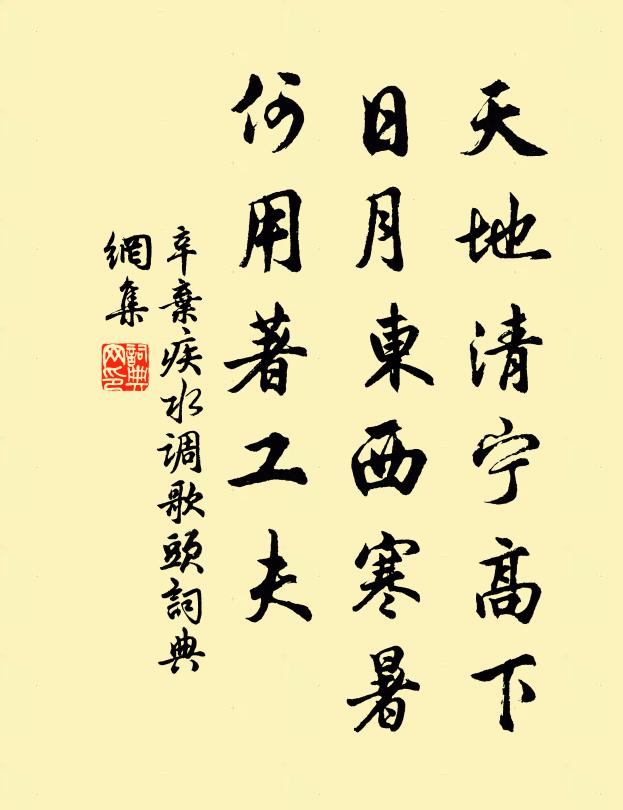 天地清宁高下
日月東西寒暑
何用著工夫
辛棄疾水调歌頭詞典
網集
詞典
网印